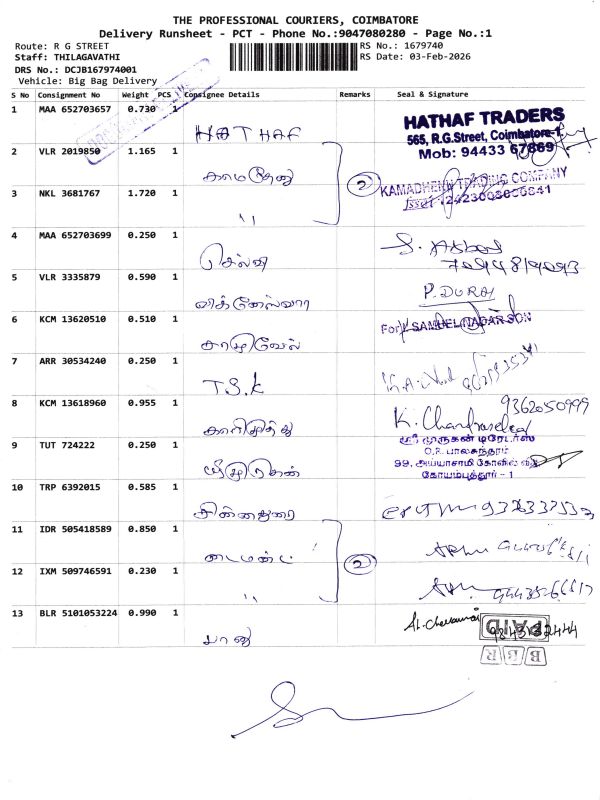 THE PROFESSIONAL COURIERS, COIMBATORE
Delivery Runsheet - PCT - Phone No.:9047080280 - Page No.:1
Route: R G STREET
RS No.: 1679740
Staff: THILAGAVATHI
RS Date: 03-Feb-2026
DRS No.: DCJB167974001
Vehicle: Big Bag Delivery
S No Consignment No Weight PCS Consignee Details Remarks Seal & Signature
1 MAA 652703657 0.730 1 HATHAF
HATHAF TRADERS
565, R.G.Street, Coimbatore-1
Mob: 94433 67869
2 VLR 2019850 1.165 1 காமதேனு
2
KAMADHENU TRADING COMPANY
3 NKL 3681767 1.720 1 "
4 MAA 652703699 0.250 1 செல்வி
5 VLR 3335879 0.590 1 விக்னேஸ்வரா P. DURAI
6 KCM 13620510 0.510 1 சாமுவேல்
For K SAMUEL NADAR SON
7 ARR 30534240 0.250 1 T.S.K
8 KCM 13618960 0.955 1 காரிமுத்து
9362050999
9 TUT 724222 0.250 1 ஸ்ரீமுருகன்
ஸ்ரீ முருகன் டிரேடர்ஸ்
O.R. பாலசுந்தரம்
99, அய்யாசாமி கோவில் வீதி
கோயம்புத்தூர் - 1
10 TRP 6392015 0.585 1 சின்னதுரை
11 IDR 505418589 0.850 1 டைமண்ட்
2
12 IXM 509746591 0.230 1 "
13 BLR 5101053224 0.990 1 பானு
PAID
B B R